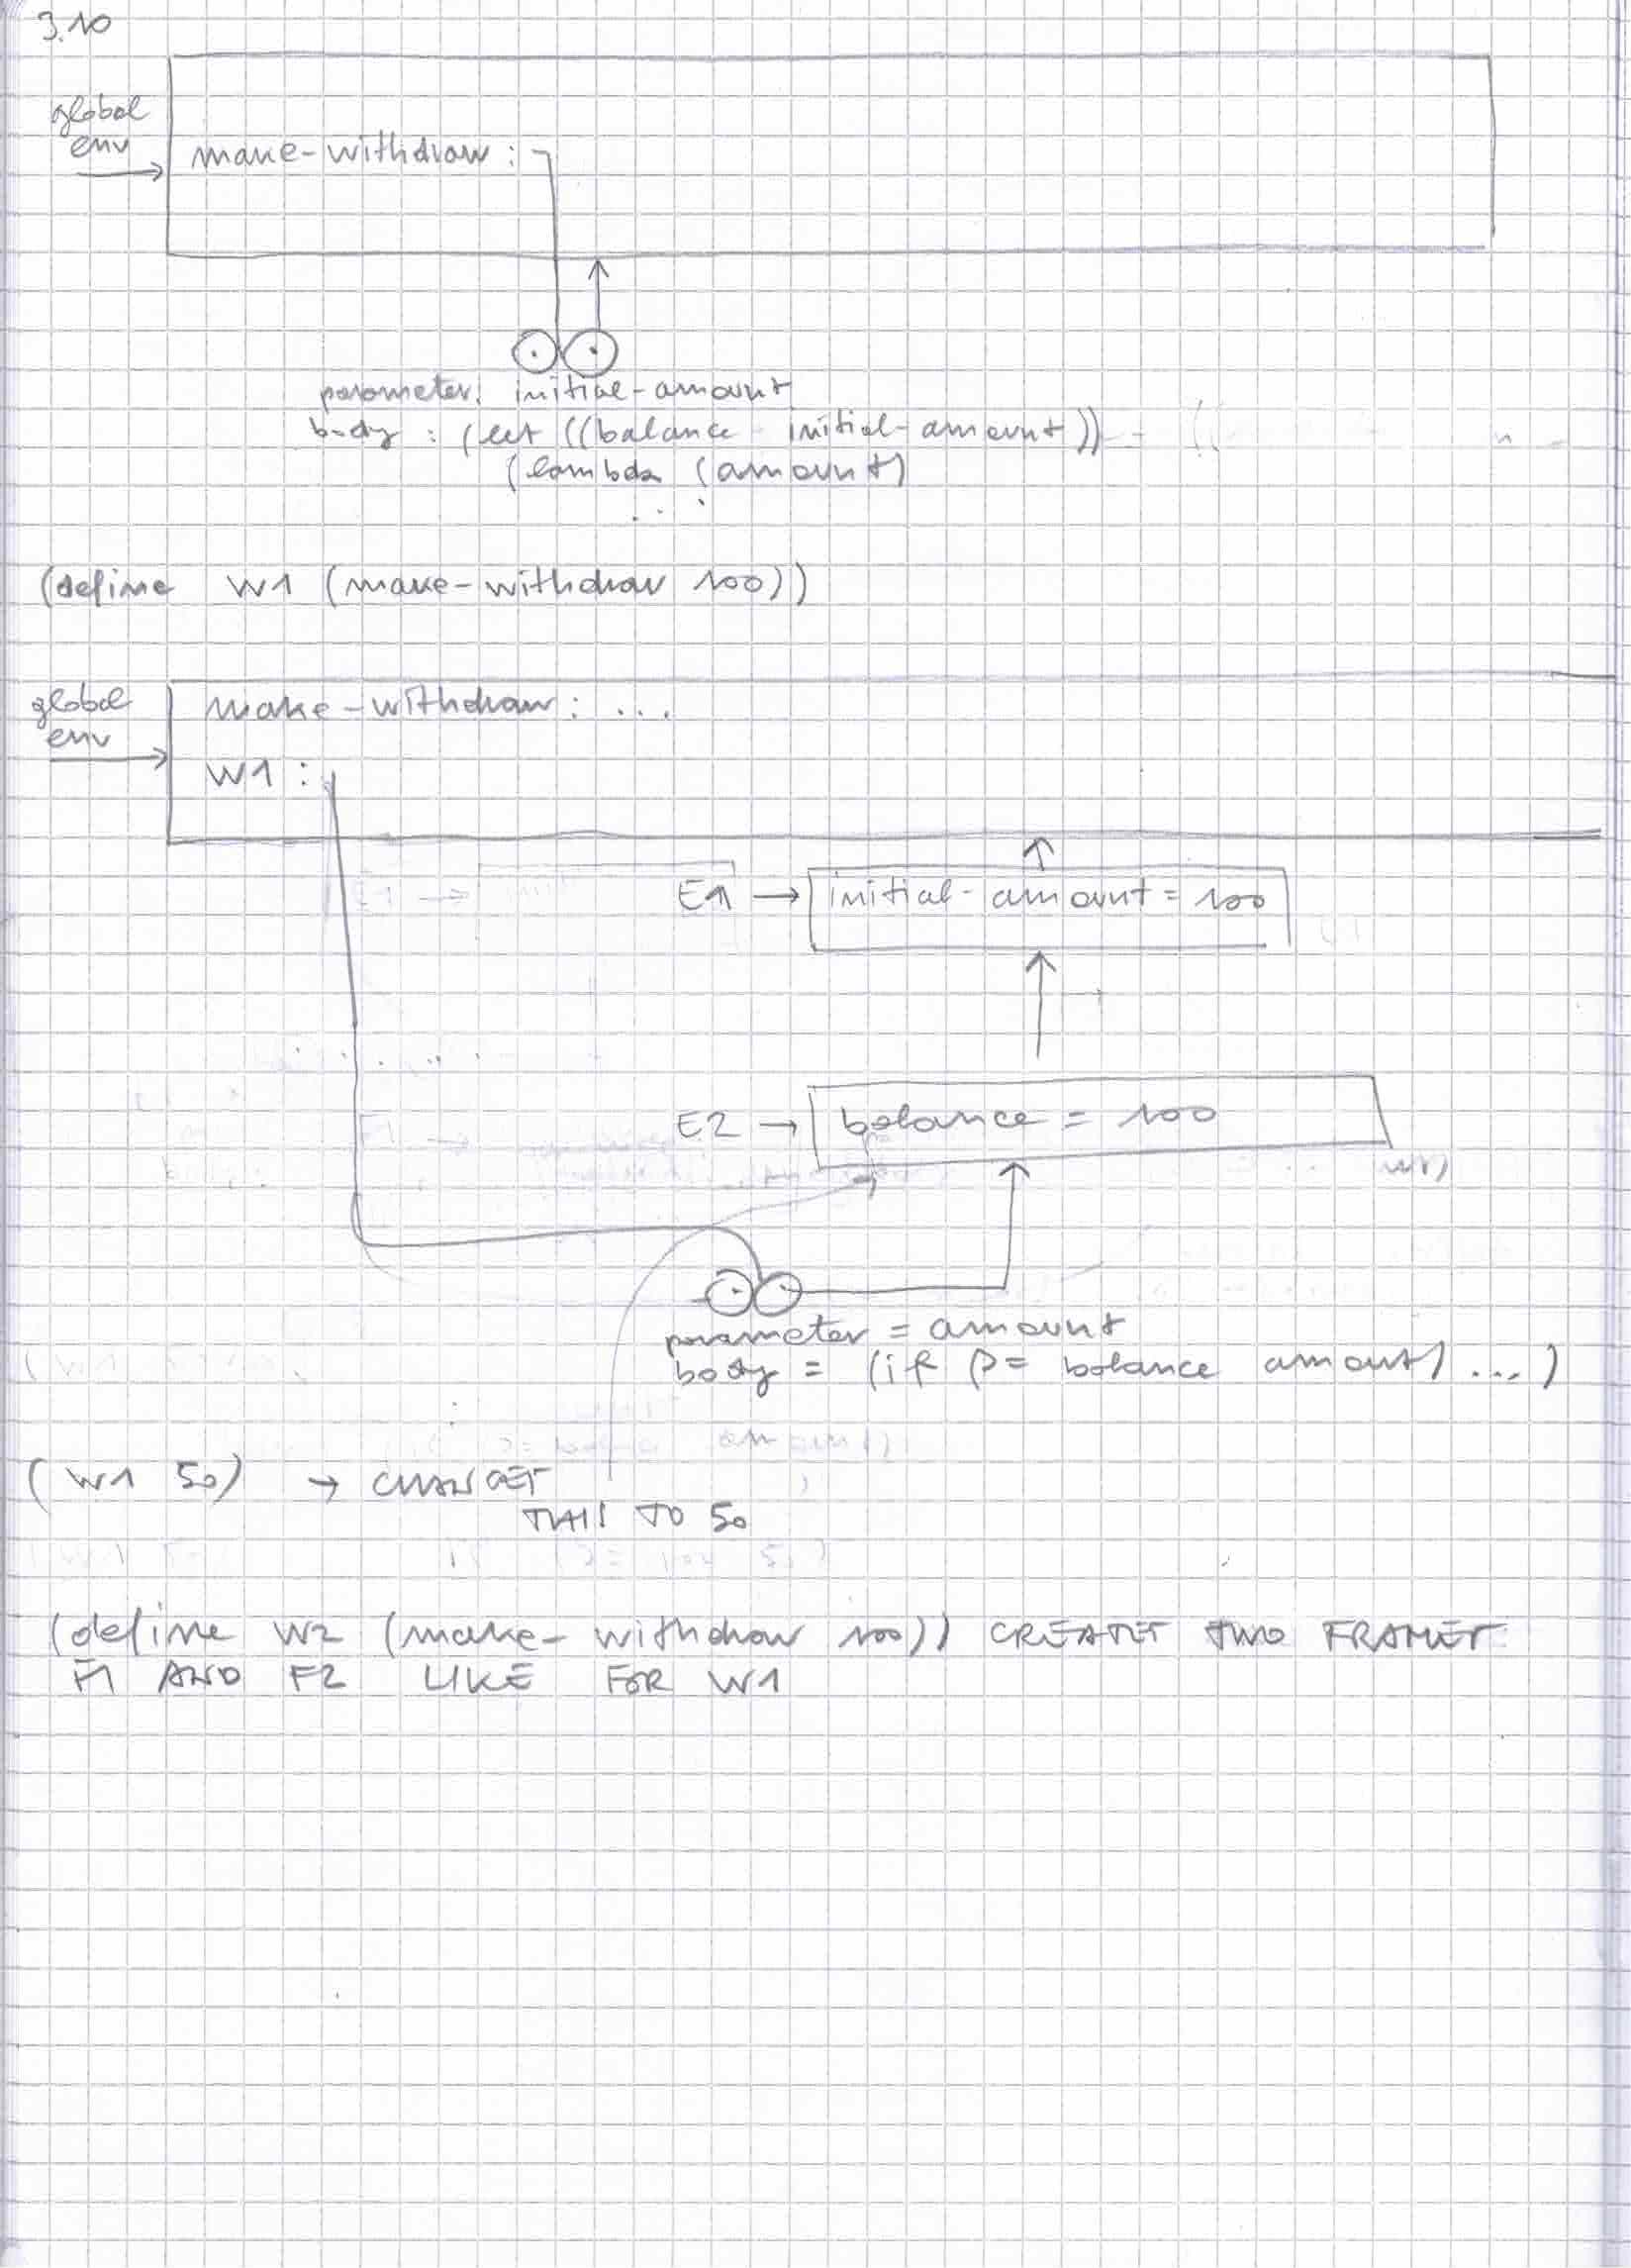 3.10
global
env
make-withdraw :
parameter: initial-amount
body : (let ((balance initial-amount))
(lambda (amount)
...
(define W1 (make-withdraw 100))
global
env
make-withdraw : ...
W1 :
E1 → initial-amount = 100
E2 → balance = 100
parameter = amount
body = (if (>= balance amount) ... )
(W1 50) → CHANGES
THIS TO 50
(define W2 (make-withdraw 100)) CREATES TWO FRAMES
F1 AND F2 LIKE FOR W1